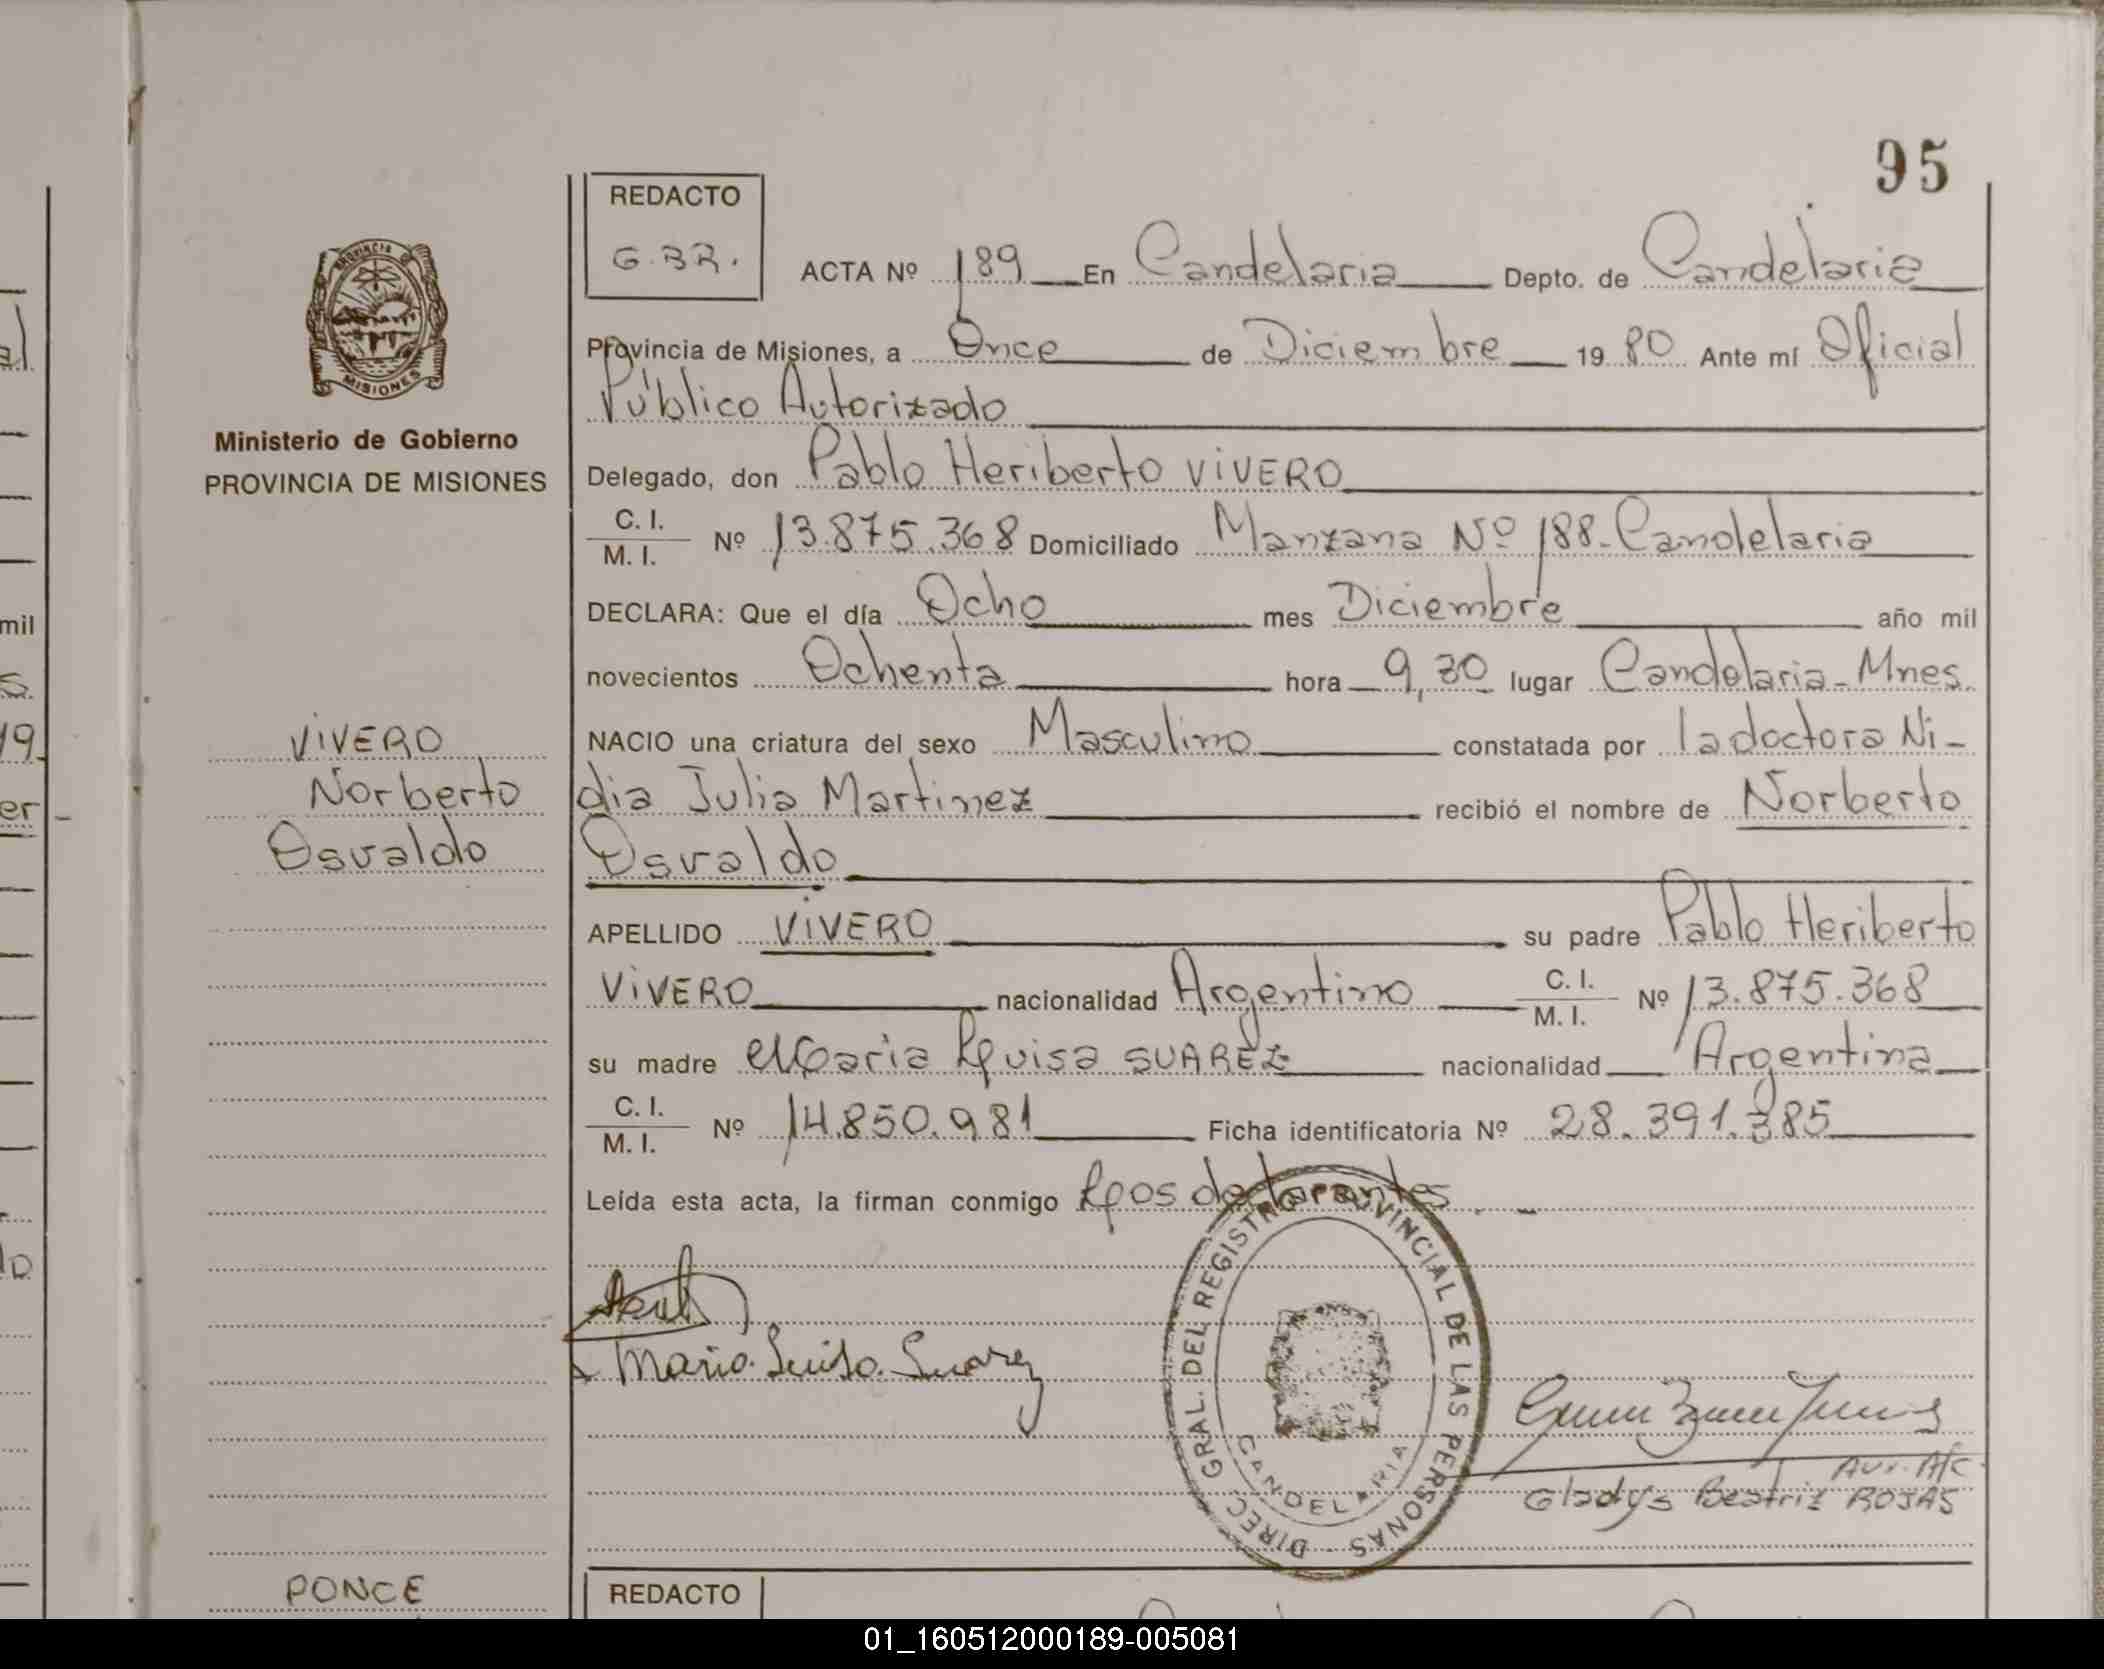 95
REDACTO
G.B.R.
ACTA Nº 189 En Candelaria Depto. de Candelaria
Provincia de Misiones, a Once de Diciembre 1980 Ante mí Oficial
Público Autorizado
Delegado, don Pablo Heriberto VIVERO
C. I.
M. I. Nº 13.875.368 Domiciliado Manzana Nº 188-Candelaria
DECLARA: Que el día Ocho mes Diciembre año mil
novecientos Ochenta hora 9,30 lugar Candelaria-Mnes.
NACIO una criatura del sexo Masculino constatada por la doctora Ni-
dia Julia Martinez recibió el nombre de Norberto
Osvaldo
APELLIDO VIVERO su padre Pablo Heriberto
VIVERO nacionalidad Argentino C. I. M. I. Nº 13.875.368
su madre Maria Luisa SUAREZ nacionalidad Argentina
C. I.
M. I. Nº 14.850.981 Ficha identificatoria Nº 28.391.385
Leída esta acta, la firman conmigo Los declarantes.
Maria Luisa Suarez
DIREC. GRAL. DEL REGISTRO PROVINCIAL DE LAS PERSONAS
CANDELARIA
Aux. A/C
Gladys Beatriz ROJAS
PROVINCIA
MISIONES
Ministerio de Gobierno
PROVINCIA DE MISIONES
VIVERO
Norberto
Osvaldo
PONCE
REDACTO
mil
S.
19
er -
01_160512000189-005081